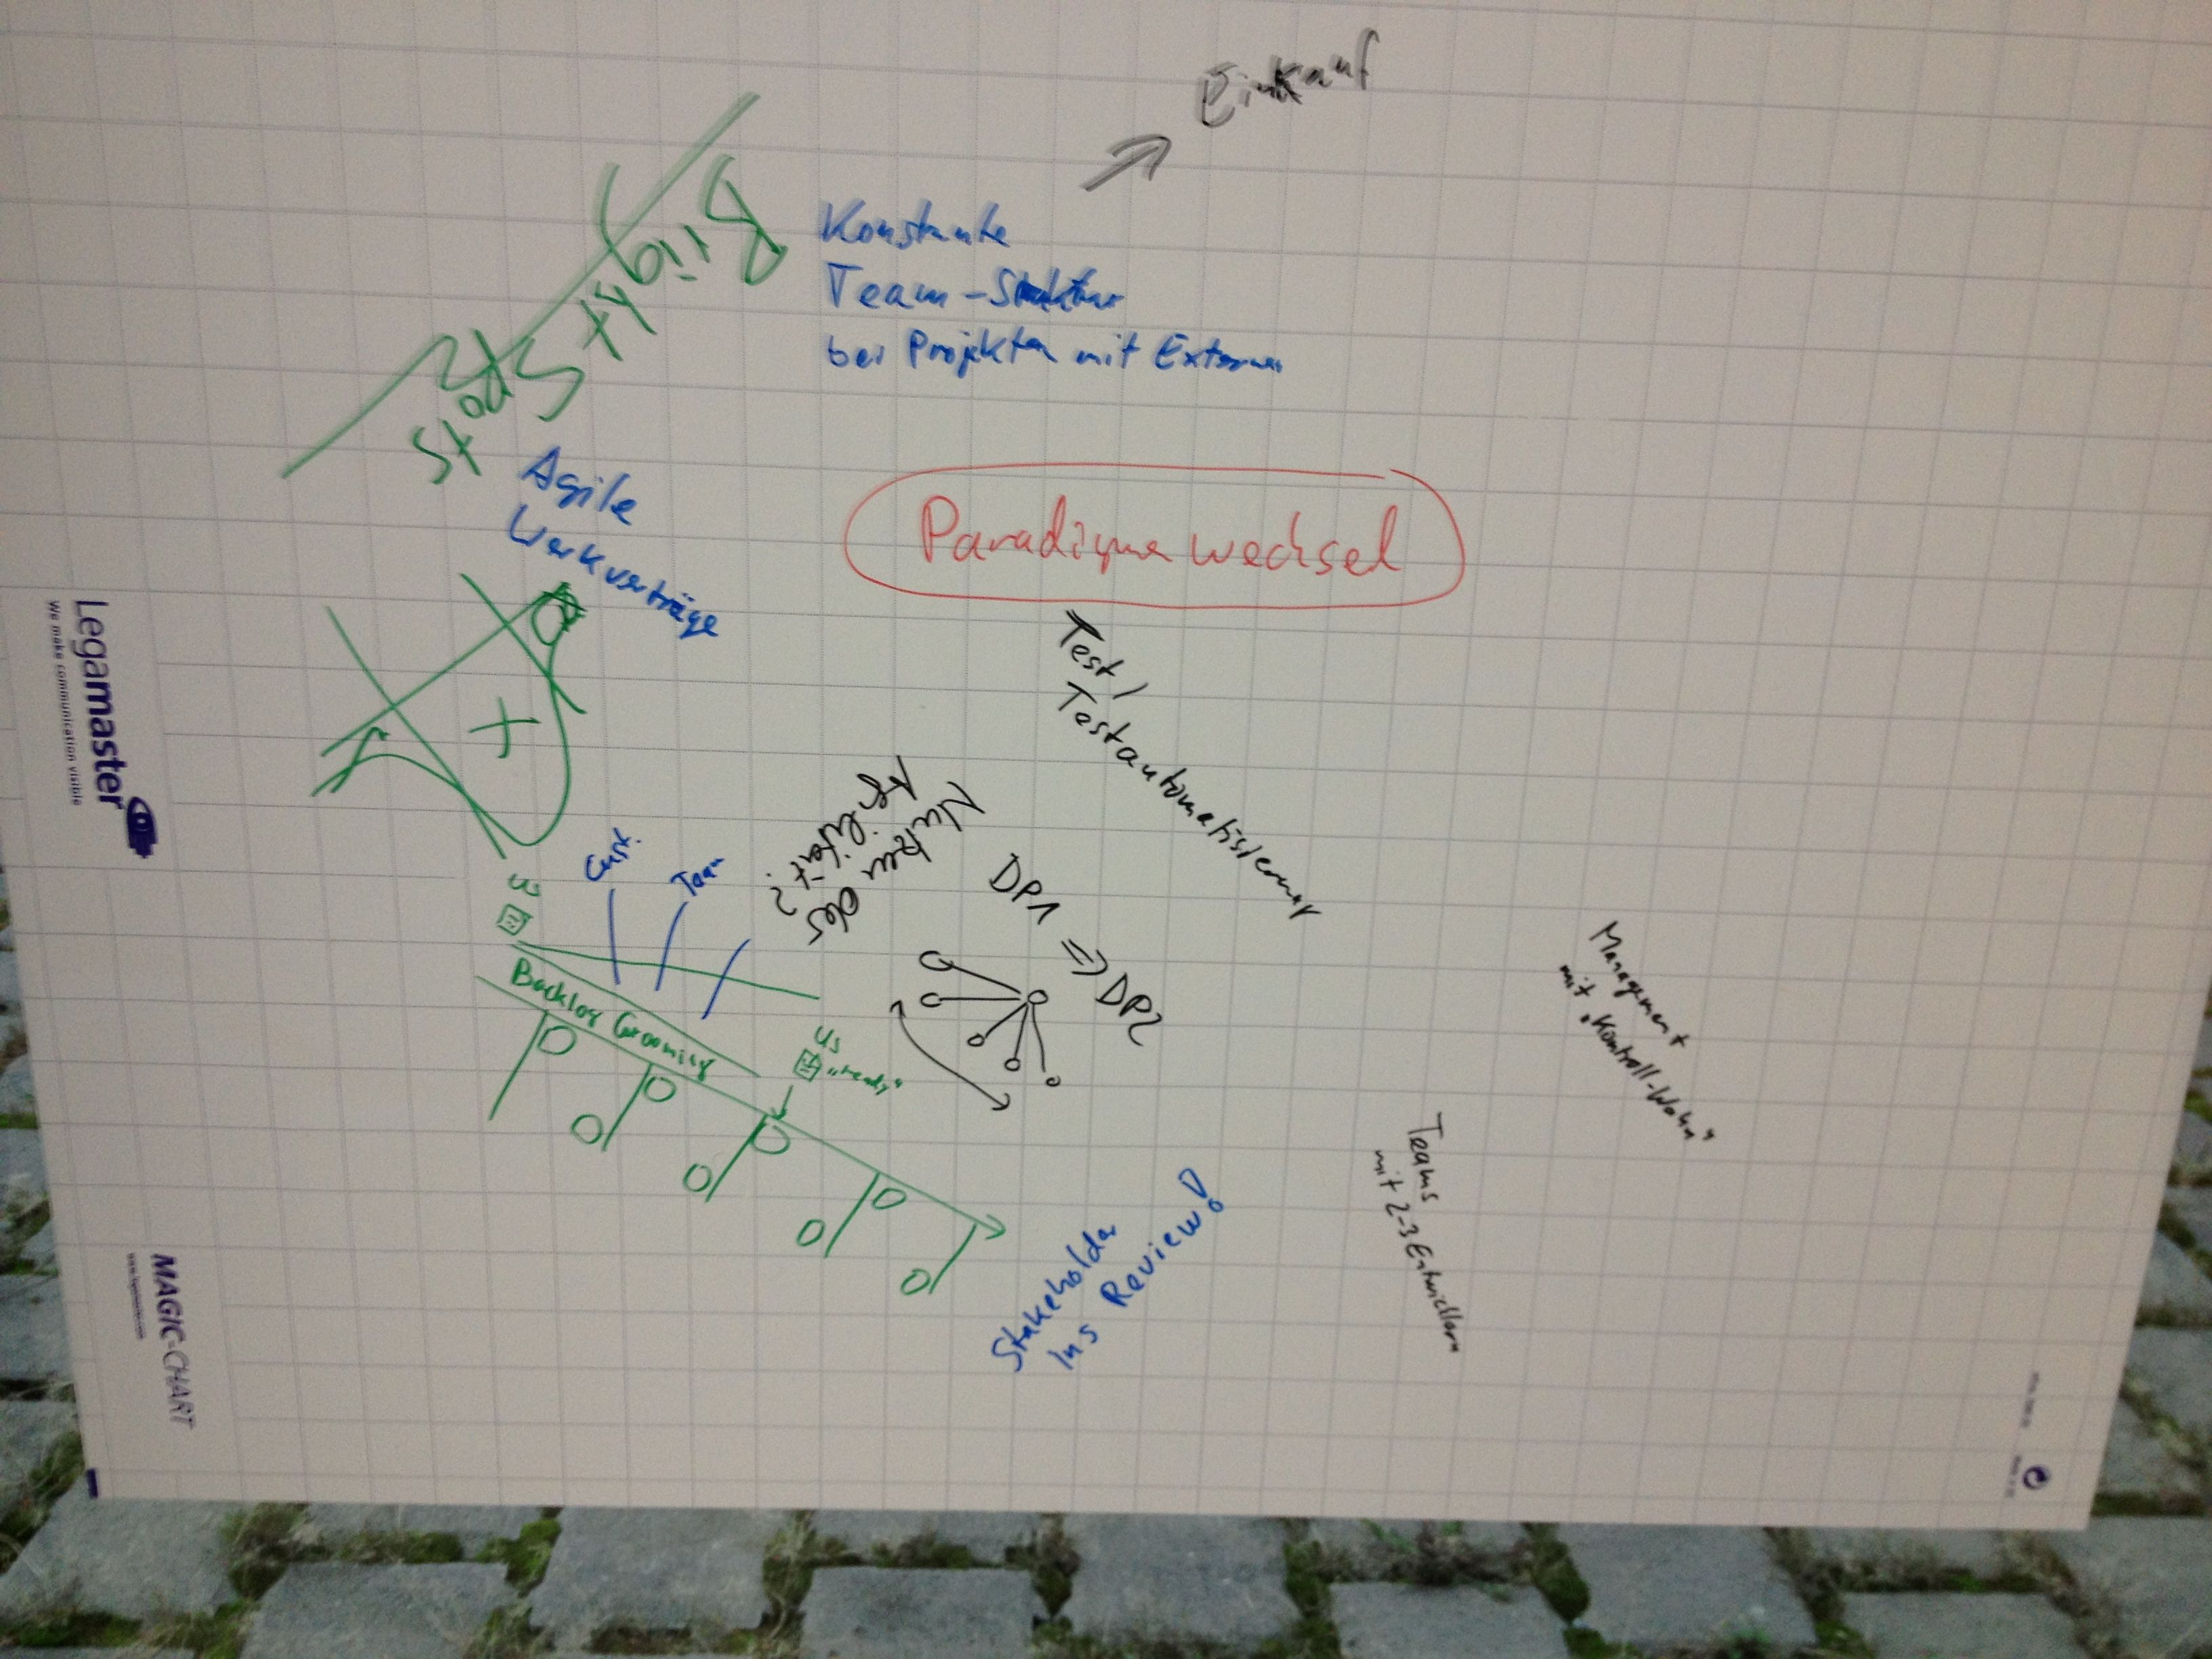 Einkauf
Konstante
Team-Struktur
bei Projekten mit Externen
Bright Spots
Agile
Werkverträge
Paradigmawechsel
Test /
Testautomatisierung
Nutzen der
Agilität?
DP1
⇒ DP2
Cust.
Team
US
Backlog Grooming
US
"ready"
Management
mit "Kontroll-Wahn"
Teams
mit 2-3 Entwicklern
Stakeholder
ins Review!
Legamaster
We make communication visible
MAGIC-CHART